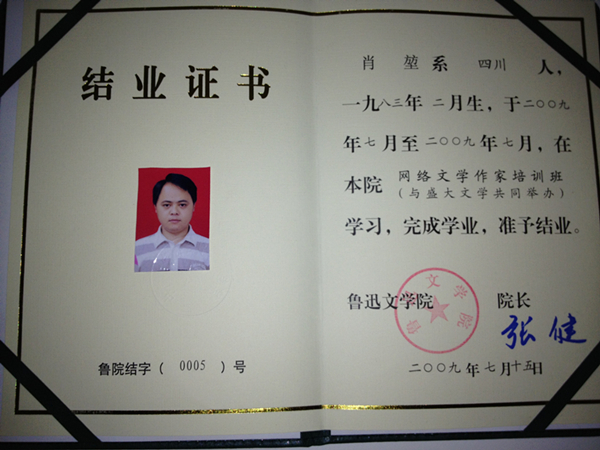 结业证书
鲁院结字（0005）号
肖堃系 四川 人，
一九八三年 二月生，于二〇〇九
年七月至二〇〇九年七月，在
本院 网络文学作家培训班
（与盛大文学共同举办）
学习，完成学业，准予结业。
鲁迅文学院 院长
张健
鲁迅文学院
二〇〇九年七月十五日